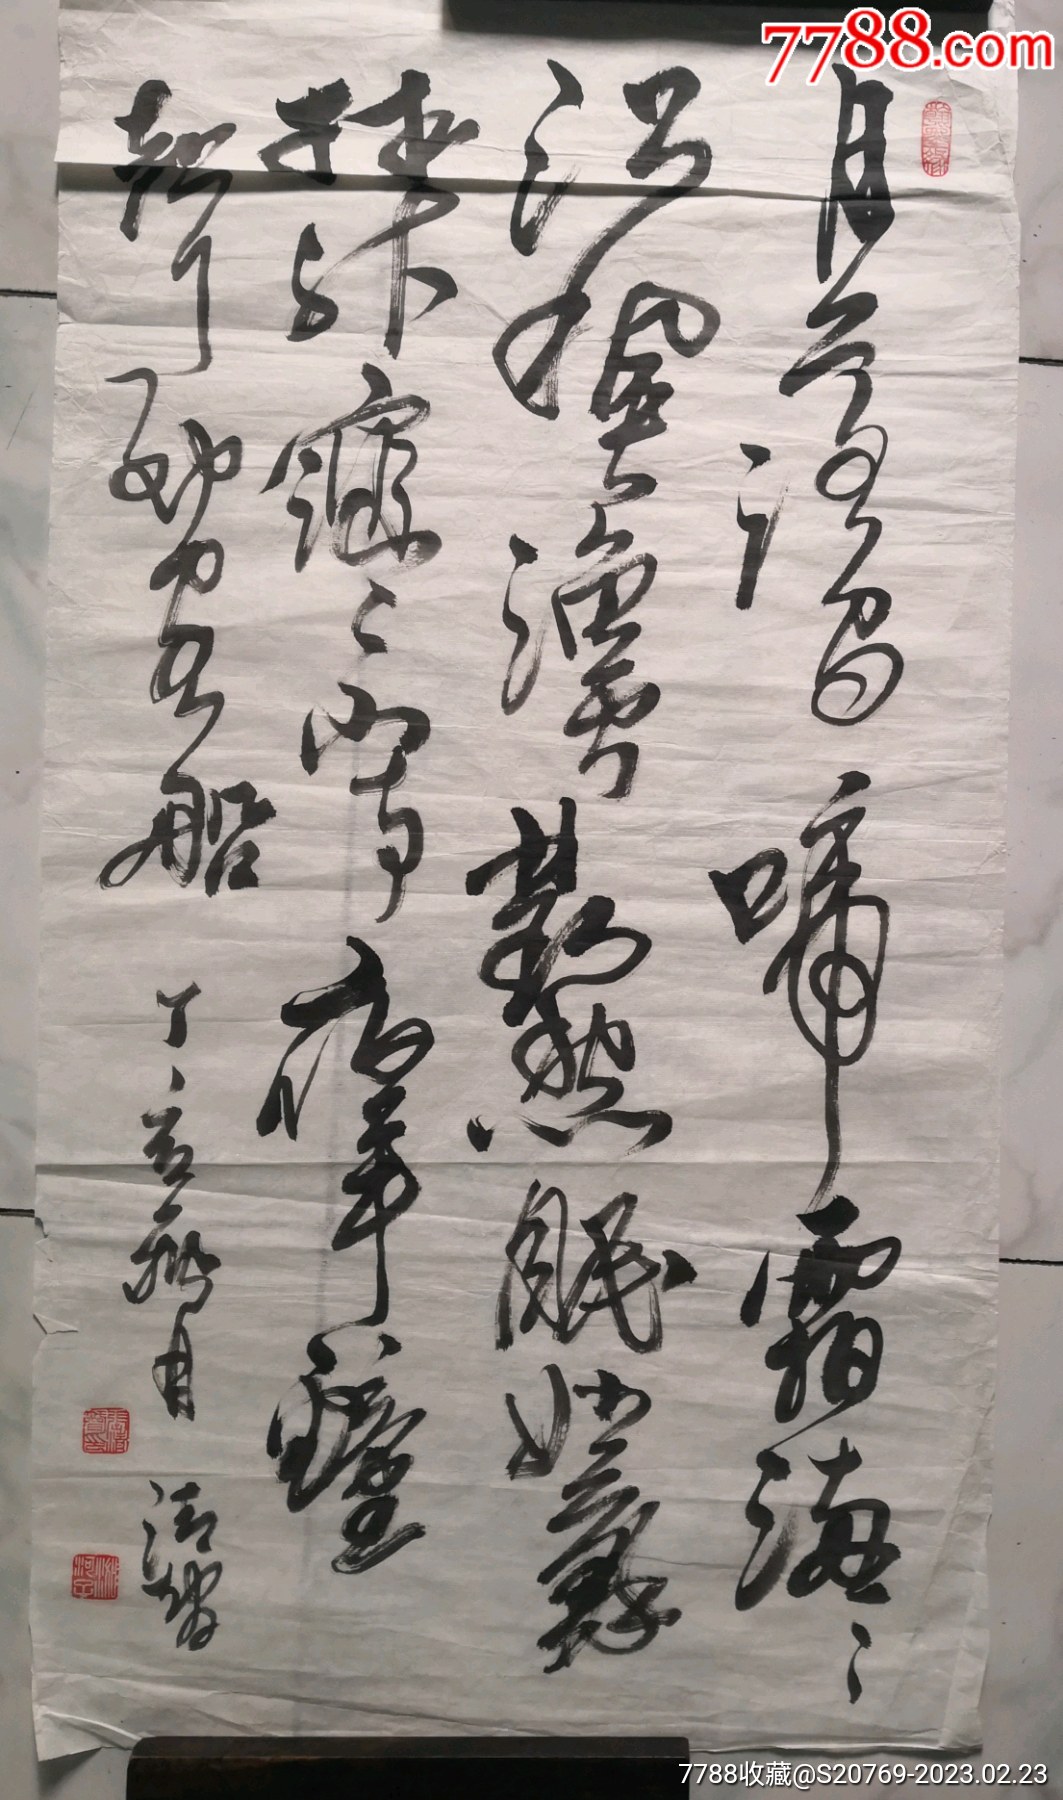 7788.com
月落烏啼霜滿天
江楓漁火對愁眠姑蘇
城外寒山寺夜半鐘
聲到客船
丁亥秋月
7788收藏@S20769-2023.02.23